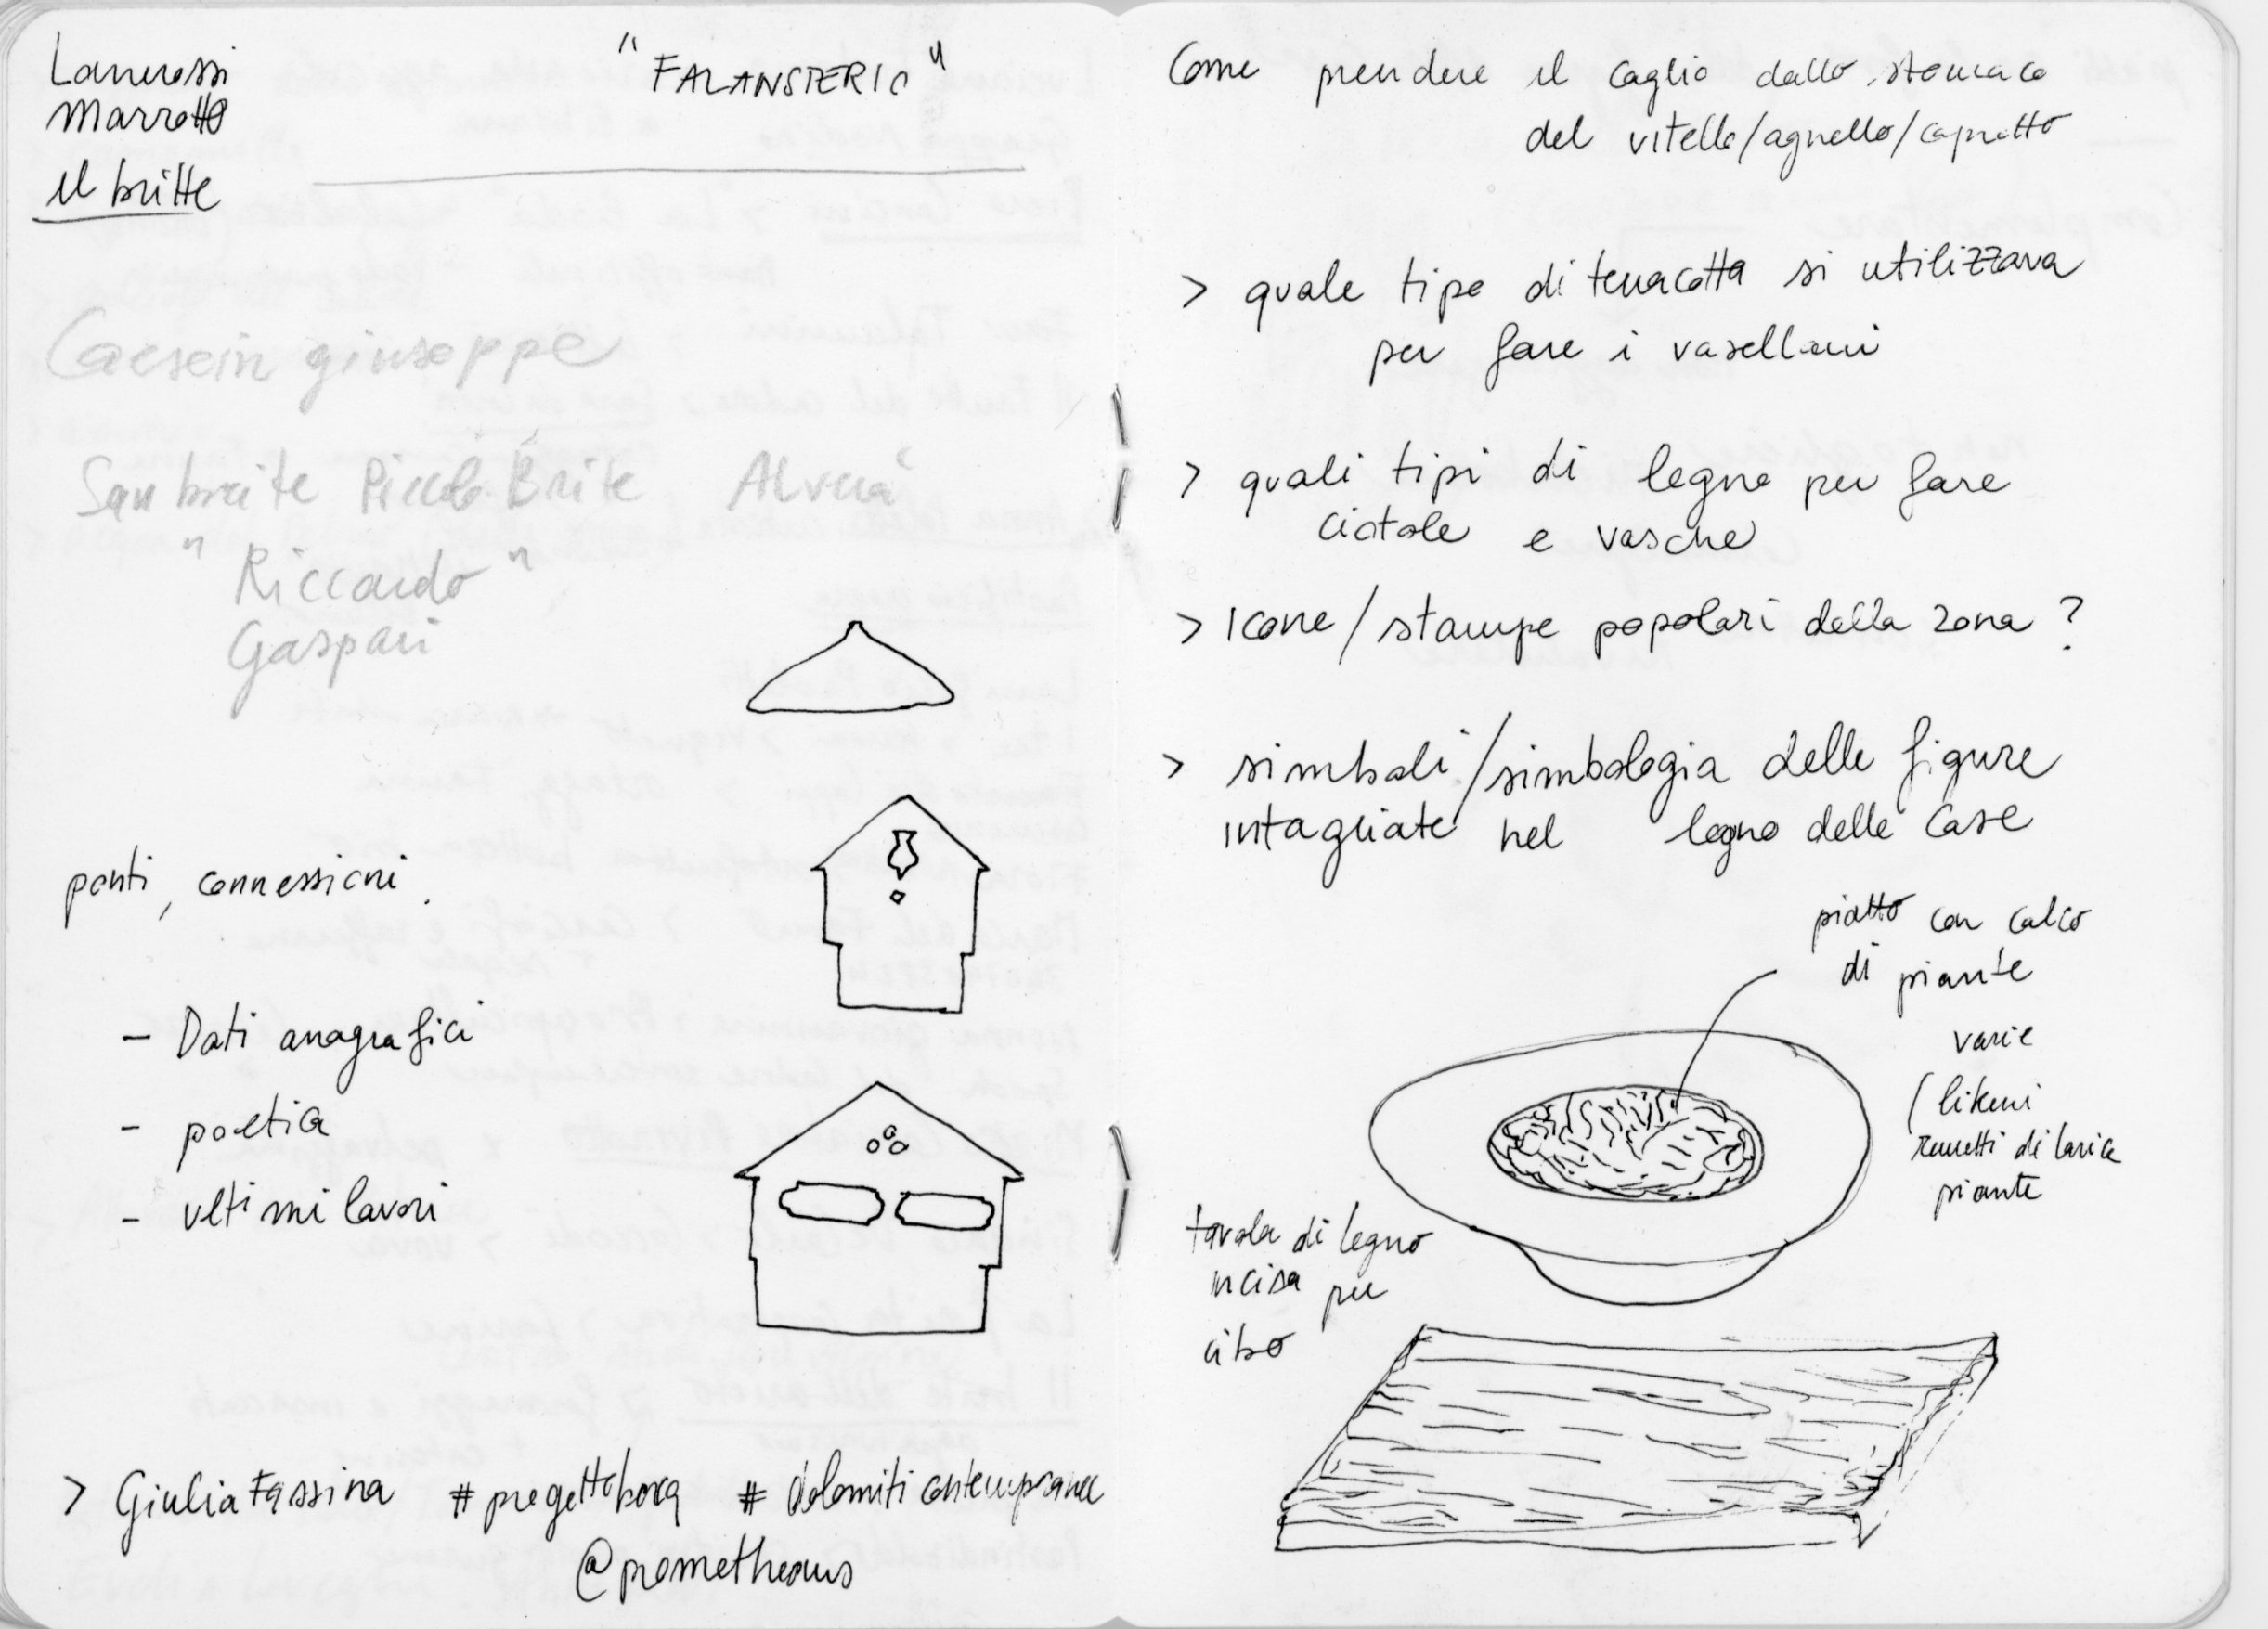 Lanerossi
Marzotto
il britte
"FALANSTERIO"
giuseppe
San brite Piccolo Brite Alverà
"Riccardo"
Gaspari
ponti, connessioni.
- Dati anagrafici
- poetica
- ultimi lavori
> Giulia Fassina #progettoborca #dolomiticontemporanee
@prometheous
Come prendere il caglio dallo stomaco
del vitello/agnello/capretto
> quale tipo di terracotta si utilizzava
per fare i vasellami
> quali tipi di legno per fare
ciotole e vasche
> Icone/stampe popolari della zona?
> simboli/simbologia delle figure
intagliate nel legno delle case
piatto con calco
di piante
varie
(likeni
rametti di larice
piante
tavola di legno
incisa per
cibo